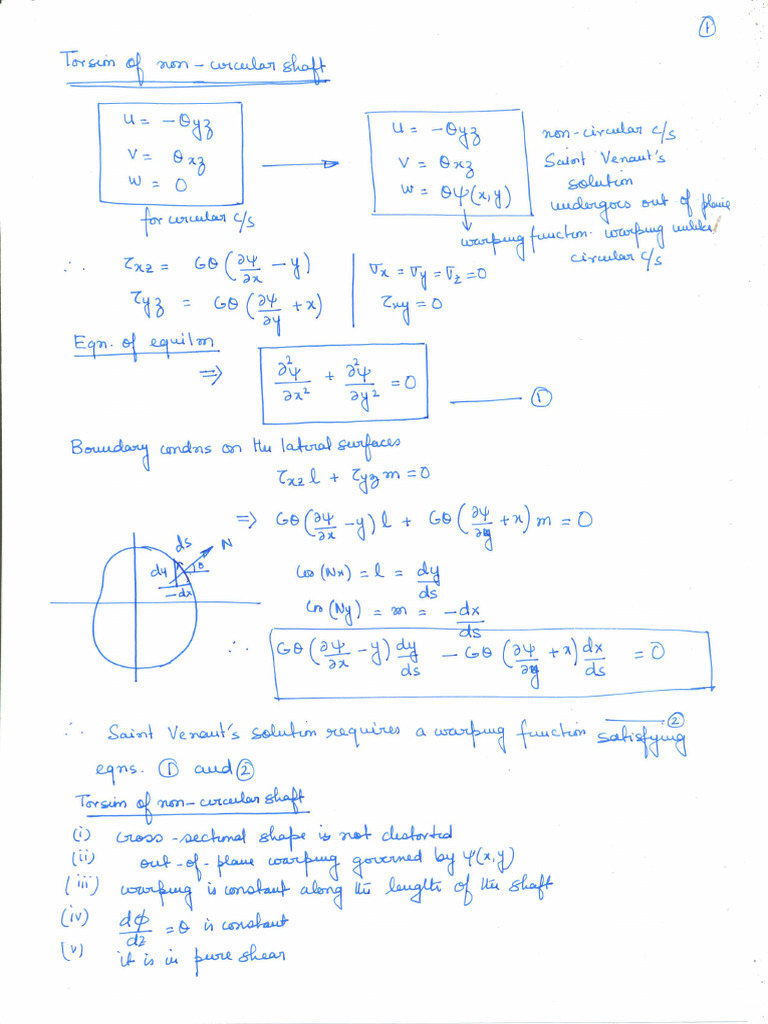 ①
Torsion of non-circular shaft
u = -θyz
v = θxz
w = 0
for circular c/s
u = -θyz
v = θxz
w = θψ(x,y)
non-circular c/s
Saint Venaut's
solution
undergoes out of plane
warping unlike
circular c/s
warping function.
∴ τxz = Gθ(∂ψ/∂x - y)
τyz = Gθ(∂ψ/∂y + x)
σx = σy = σz = 0
τxy = 0
Eqn. of equilm
⇒ ∂²ψ/∂x² + ∂²ψ/∂y² = 0 ①
Boundary condns on the lateral surfaces
τxz l + τyz m = 0
⇒ Gθ(∂ψ/∂x - y) l + Gθ(∂ψ/∂y + x) m = 0
ds
N
dy
θ
-dx
Cos(Nx) = l = dy/ds
Cos(Ny) = m = -dx/ds
∴ Gθ(∂ψ/∂x - y) dy/ds - Gθ(∂ψ/∂y + x) dx/ds = 0
②
∴ Saint Venaut's solution requires a warping function satisfying
eqns. ① and ②
Torsion of non-circular shaft
(i) cross-sectional shape is not distorted
(ii) out-of-plane warping governed by ψ(x,y)
(iii) warping is constant along the length of the shaft
(iv) dφ/dz = θ is constant
(v) it is in pure shear